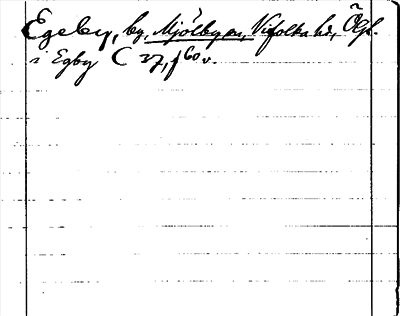 Egeby, by, Mjölby sn, Vifolka hd, Ögl.
i Egby C 37, f 60 v.